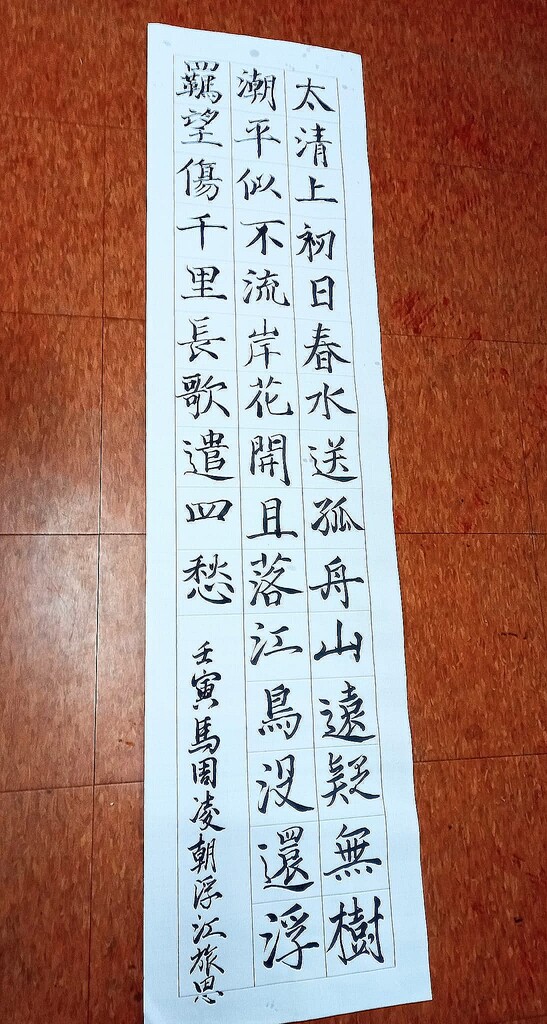 太清上初日春水送孤舟山遠疑無樹
潮平似不流岸花開且落江鳥没還浮
羈望傷千里長歌遣四愁
壬寅馬周凌朝浮江旅思